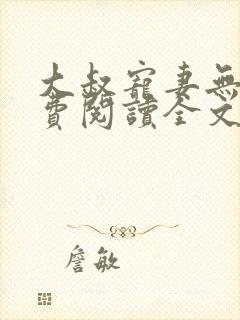 大叔寵妻無
費閱讀全文
詹敏